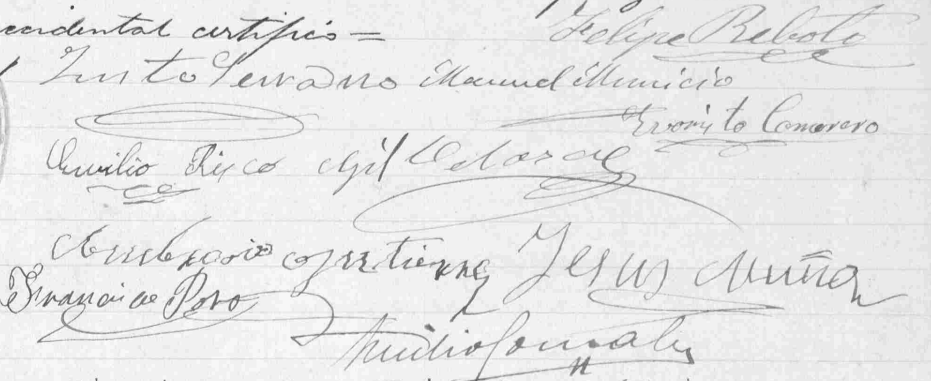 accidental certifico =
Felipe Rebollo
Justo Serrano Manuel Municio
Evaristo Camarero
Emilio Risco Gil
Ambrosio Gutierrez Jesus Muñoz
Francisco Polo
Emilio Gonzalez